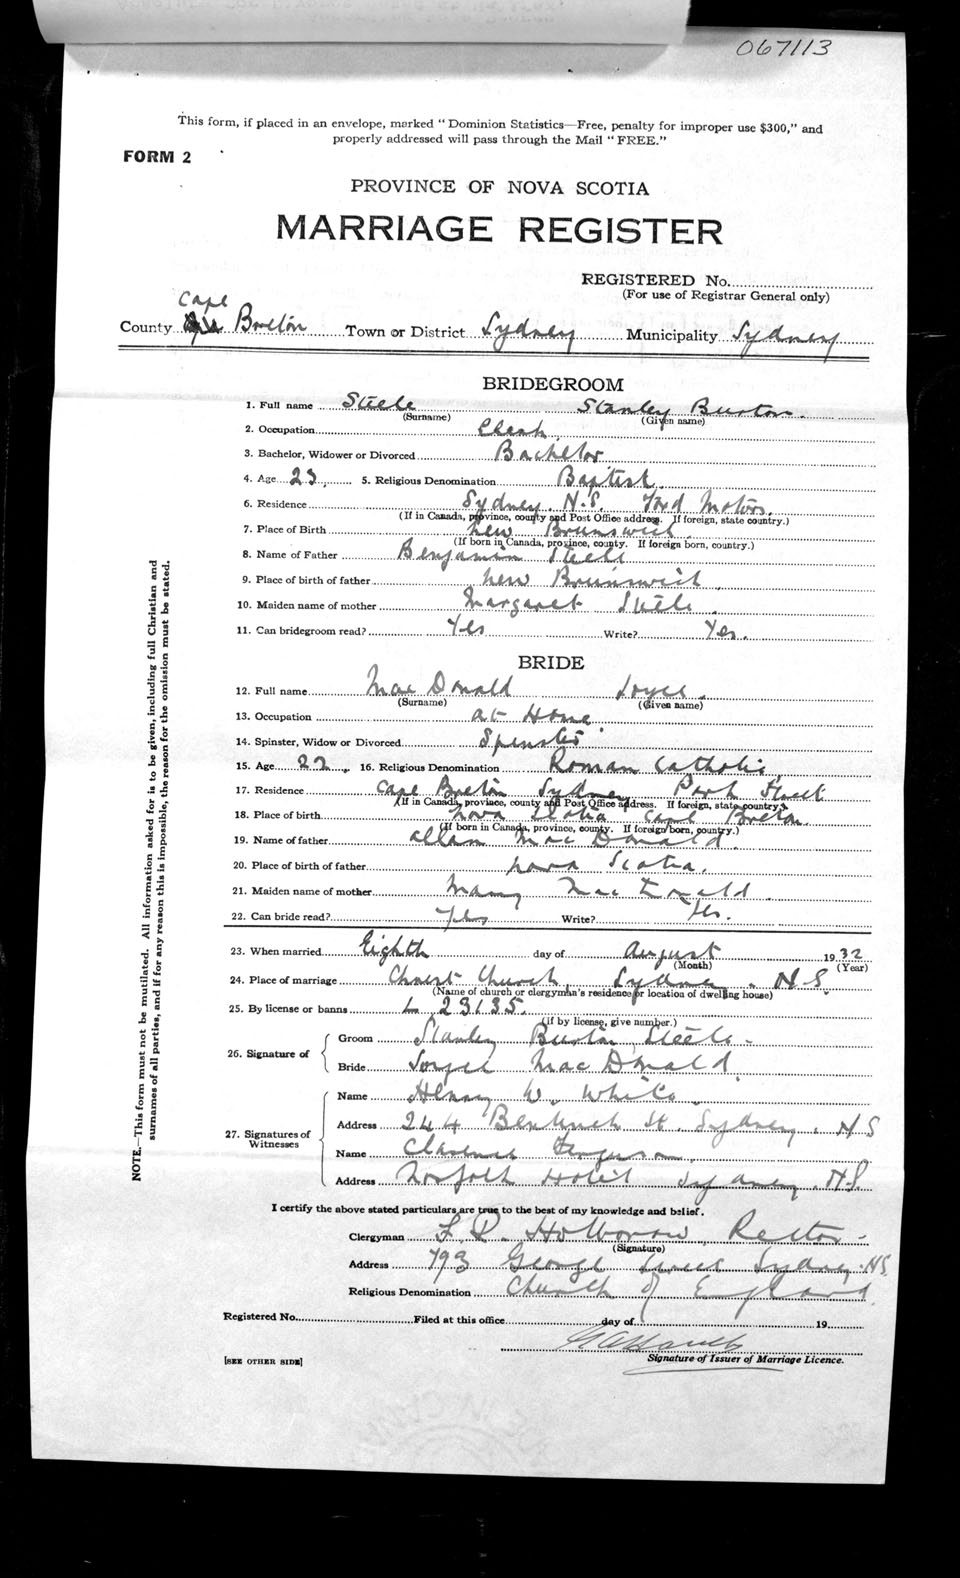 067113
This form, if placed in an envelope, marked "Dominion Statistics—Free, penalty for improper use $300," and
properly addressed will pass through the Mail "FREE."
FORM 2
PROVINCE OF NOVA SCOTIA
MARRIAGE REGISTER
REGISTERED No.
(For use of Registrar General only)
Cape
County Breton Town or District Sydney Municipality Sydney
BRIDEGROOM
1. Full name Steele Stanley Burton
(Surname) (Given name)
2. Occupation Clerk
3. Bachelor, Widower or Divorced Bachelor
4. Age 5. Religious Denomination Baptist
6. Residence Sydney N.S. Ford Motors.
(If in Canada, province, county and Post Office address. If foreign, state country.)
7. Place of Birth New Brunswick
(If born in Canada, province, county. If foreign born, country.)
8. Name of Father Benjamin Steele
9. Place of birth of father New Brunswick
10. Maiden name of mother Margaret Steele
11. Can bridegroom read? Yes Write? Yes.
BRIDE
12. Full name Mac Donald Joyce.
(Surname) (Given name)
13. Occupation at Home
14. Spinster, Widow or Divorced Spinster
15. Age 22. 16. Religious Denomination Roman Catholic
17. Residence Cape Breton Sydney Park Street
(If in Canada, province, county and Post Office address. If foreign, state country.)
18. Place of birth Nova Scotia Cape Breton
(If born in Canada, province, county. If foreign born, country.)
19. Name of father Allan Mac Donald.
20. Place of birth of father Nova Scotia.
21. Maiden name of mother Mary Mac Donald
22. Can bride read? Yes Write? Yes.
23. When married Eighth day of August 1932
(Month) (Year)
24. Place of marriage Christ Church, Sydney. N.S.
(Name of church or clergyman's residence or location of dwelling house)
25. By license or banns L 23135.
(if by license, give number.)
26. Signature of
Groom Stanley Burton Steele.
Bride Joyce Mac Donald.
27. Signatures of Witnesses
Name Henry W. White.
Address 244 Bentinck St. Sydney. N S
Name Clarence Ferguson.
Address Norfolk Hotel Sydney. N.S.
I certify the above stated particulars are true to the best of my knowledge and belief.
Clergyman Rector
(Signature)
Address 793 George Street Sydney. N.S.
Religious Denomination Church of England
Registered No. Filed at this office day of 19
Signature of Issuer of Marriage Licence.
[SEE OTHER SIDE]
NOTE.—This form must not be mutilated. All information asked for is to be given, including full Christian and
surnames of all parties, and if for any reason this is impossible, the reason for the omission must be stated.